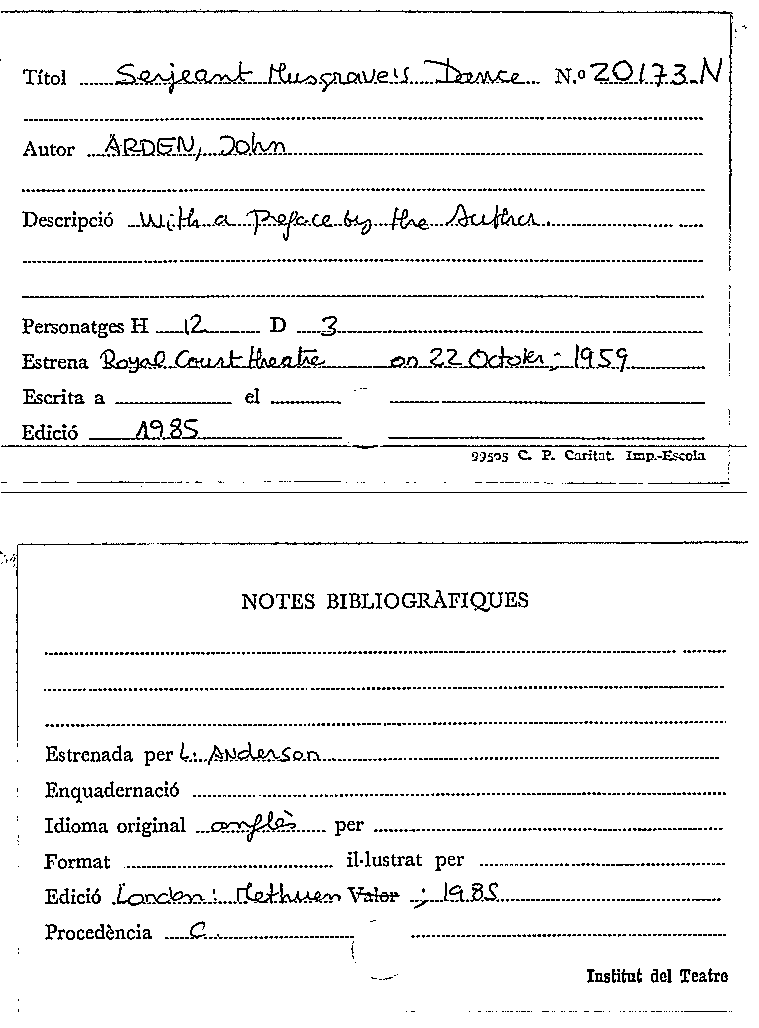 Títol Serjeant Musgrave's Dance N.º 20173-N
Autor ARDEN, John
Descripció With a Preface by the Author.
Personatges H 12 D 3
Estrena Royal Court theatre on 22 October; 1959
Escrita a el
Edició 1985
99505 C. P. Caritat. Imp.-Escola
NOTES BIBLIOGRÀFIQUES
Estrenada per L. Anderson
Enquadernació
Idioma original anglès per
Format il·lustrat per
Edició London: Methuen Valor ; 1985
Procedència C.
Institut del Teatre